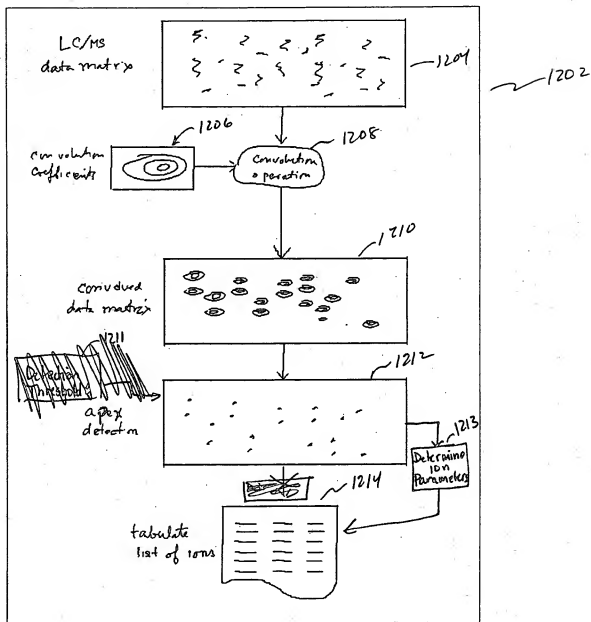 LC/MS
data matrix
1204
1202
1206
convolution
coefficients
1208
convolution
operation
1210
convolved
data matrix
1211
Detection
Threshold
1212
apex
detection
1213
Determine
Ion
Parameters
1214
tabulate
list of ions